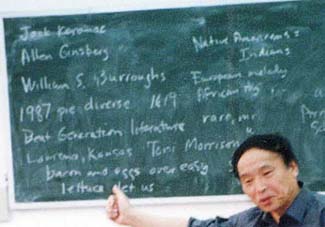 Jack Kerouac
Allen Ginsberg
William S. Burroughs
1987 pie diverse 1619
Beat Generation literature
Lawrence, Kansas Toni Morrison
bacon and eggs over easy
lettuce let us
Native Americans =
Indians
European melody
African
rare,